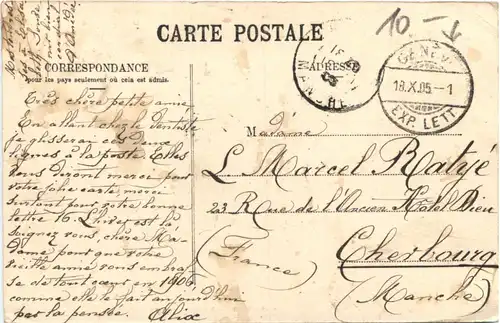 10 -
CARTE POSTALE
CORRESPONDANCE
pour les pays seulement où cela est admis.
ADRESSE
MANCHE
GENÈVE
18.X.05.-1
EXP. LETT.
Très chère petite amie
En allant chez le dentiste
je glisserai ces deux
lignes à la poste. Elles
vous diront merci pour
votre jolie carte, merci
surtout pour votre bonne
lettre
soignez vous, chère Ma-
dame pour que votre
vieille amie vous embras-
se de tout cœur en 1906
comme elle le fait aujourd'hui
par la pensée. Alix
Madame
L. Marcel Ratyé
23 Rue de l'Ancien Hôtel Dieu
Cherbourg
(France)
(Manche)